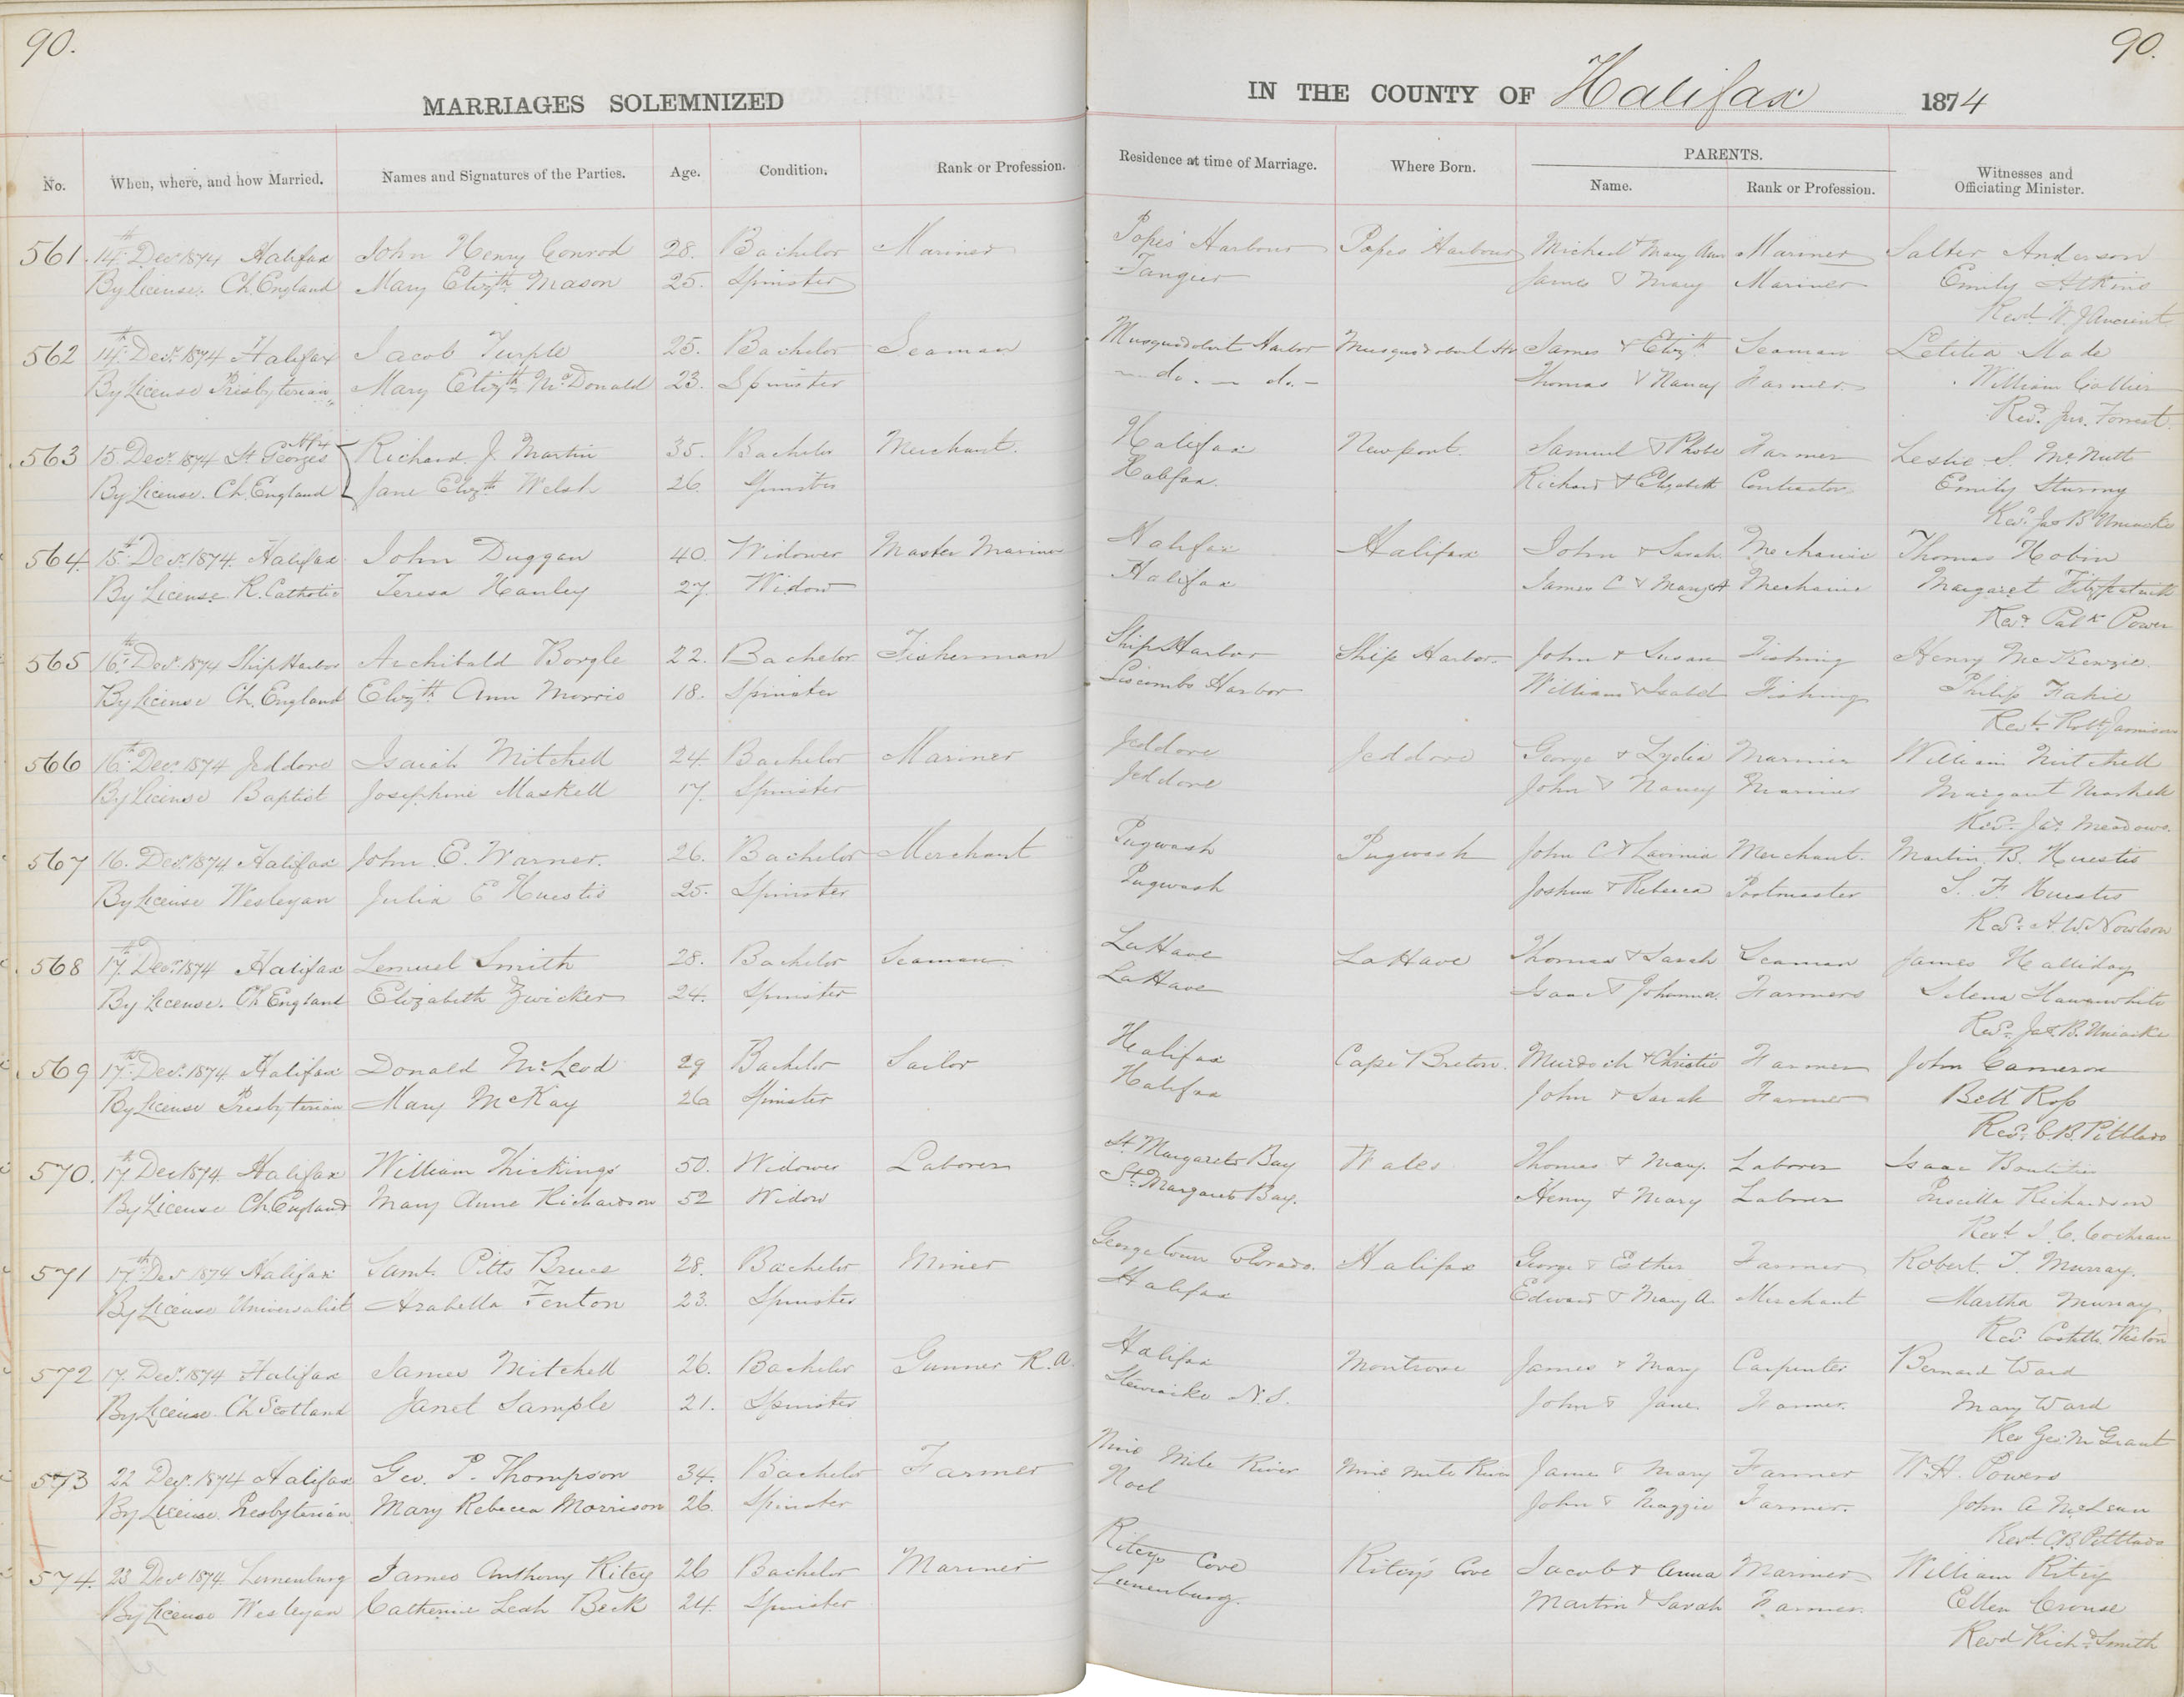 90.
90.
MARRIAGES SOLEMNIZED
IN THE COUNTY OF Halifax 1874
No. When, where, and how Married. Names and Signatures of the Parties. Age. Condition. Rank or Profession. Residence at time of Marriage. Where Born. PARENTS. Name. Rank or Profession. Witnesses and Officiating Minister.
561. 14th Decr 1874 Halifax John Henry Conrod 28. Bachelor Mariner Popes Harbour Popes Harbour Michael & Mary Ann Mariner Salter Anderson
By License. Ch. England Mary Elizth Mason 25. Spinster Tangier James & Mary Mariner Emily Atkins
Revd W. J. Ancient
562 14th Decr 1874 Halifax Jacob Turple 25. Bachelor Seaman Musquodobit Harbor Musquodobit Hr James & Elizth Seaman Letitia Slade
By License Presbyterian Mary Elizth McDonald 23. Spinster do. do. Thomas & Nancy Farmer William Collier
Revd. Jno. Forrest.
563 15 Decr 1874 St Georges Hfx Richard J. Martin 35. Bachelor Merchant. Halifax Newport. Samuel & Phobe Farmer Leslie S. McNutt
By License. Ch. England Jane Elizth Welsh 26. Spinster Halifax. Richard & Elizabeth Contractor Emily
Revd. Jas B Uniacke
564. 15th Decr 1874. Halifax John Duggan 40. Widower Master Mariner Halifax Halifax John & Sarah Mechanic Thomas Hobin
By License R. Catholic Teresa Hanley 27. Widow Halifax James C & Mary A Mechanic Margaret Fitzpatrick
Revd. Patk Power
565 16th Decr 1874 Ship Harbor Archibald Borgle 22. Bachelor Fisherman Ship Harbor Ship Harbor. John & Susan Fishing Henry McKenzie.
By License Ch. England Elizth Ann Morris 18. Spinster Liscombe Harbor William & Isabel Fishing Philip Fahie
Revd. Robt Jamison
566 16th Decr 1874 Jeddore Isaiah Mitchell 24 Bachelor Mariner Jeddore Jeddore George & Lydia Mariner William Mitchell
By License Baptist Josephine Maskell 17. Spinster Jeddore John & Nancy Mariner Margaret Maskell
Revd. Jas. Meadows.
567 16. Decr 1874 Halifax John E. Warner. 26. Bachelor Merchant Pugwash Pugwash John C & Lavinia Merchant. Martin B. Huestis
By License Wesleyan Julia E Huestis 25. Spinster Pugwash Joshua & Rebecca Postmaster S. F. Huestis
Revd. A. W. Nicolson
568 17th Decr 1874 Halifax Lemuel Smith 28. Bachelor Seaman LaHave LaHave Thomas & Sarah Seaman James Halliday
By License. Ch England Elizabeth Zwicker 24. Spinster LaHave Isaac & Johanna. Farmers Selena
Revd. Jas. B. Uniacke
569 17th Decr 1874 Halifax Donald McLeod 29 Bachelor Sailor Halifax Cape Breton. Murdoch & Christie Farmer John Cameron
By License Presbyterian Mary McKay 26 Spinster Halifax John & Sarah Farmer Bell Ross
Revd. C. B. Pitblado
570. 17th Dec 1874 Halifax William Thickings 50. Widower Laborer St Margarets Bay Wales Thomas & Mary. Laborer Isaac Boutilier
By License Ch. England Mary Anne Richardson 52 Widow St. Margarets Bay. Henry & Mary Laborer Priscilla Richardson
Revd. J. C. Cochran
571 17th Decr 1874 Halifax Saml. Pitts Bruce 28. Bachelor Miner Georgetown Colorado. Halifax George & Esther Farmer Robert. T. Murray.
By License Universalist Arabella Fenton 23. Spinster Halifax Edward & Mary A. Merchant Martha Murray
Revd Costello Weston
572 17. Decr 1874 Halifax James Mitchell 26. Bachelor Gunner R. A. Halifax Montrose James & Mary Carpenter Bernard Ward
By License. Ch Scotland Janet Sample 21. Spinster Stewiacke N.S. John & Jane Farmer. Mary Ward
Rev Geo. M Grant
573 22 Decr 1874 Halifax Geo. P. Thompson 34. Bachelor Farmer Nine Mile River Nine Mile River James & Mary Farmer W. H. Powers
By License. Presbyterian. Mary Rebecca Morrison 26. Spinster Noel John & Maggie Farmer. John A McLean
Revd. C. B. Pitblado
574. 23 Decr 1874 Lunenburg James Anthony Ritcy 26 Bachelor Mariner Ritcys Cove Ritcy's Cove Jacob & Anna Mariner William Ritcy
By License Wesleyan Catherine Leah Beck 24. Spinster Lunenburg. Martin & Sarah Farmer. Ellen Crouse
Revd Richd Smith